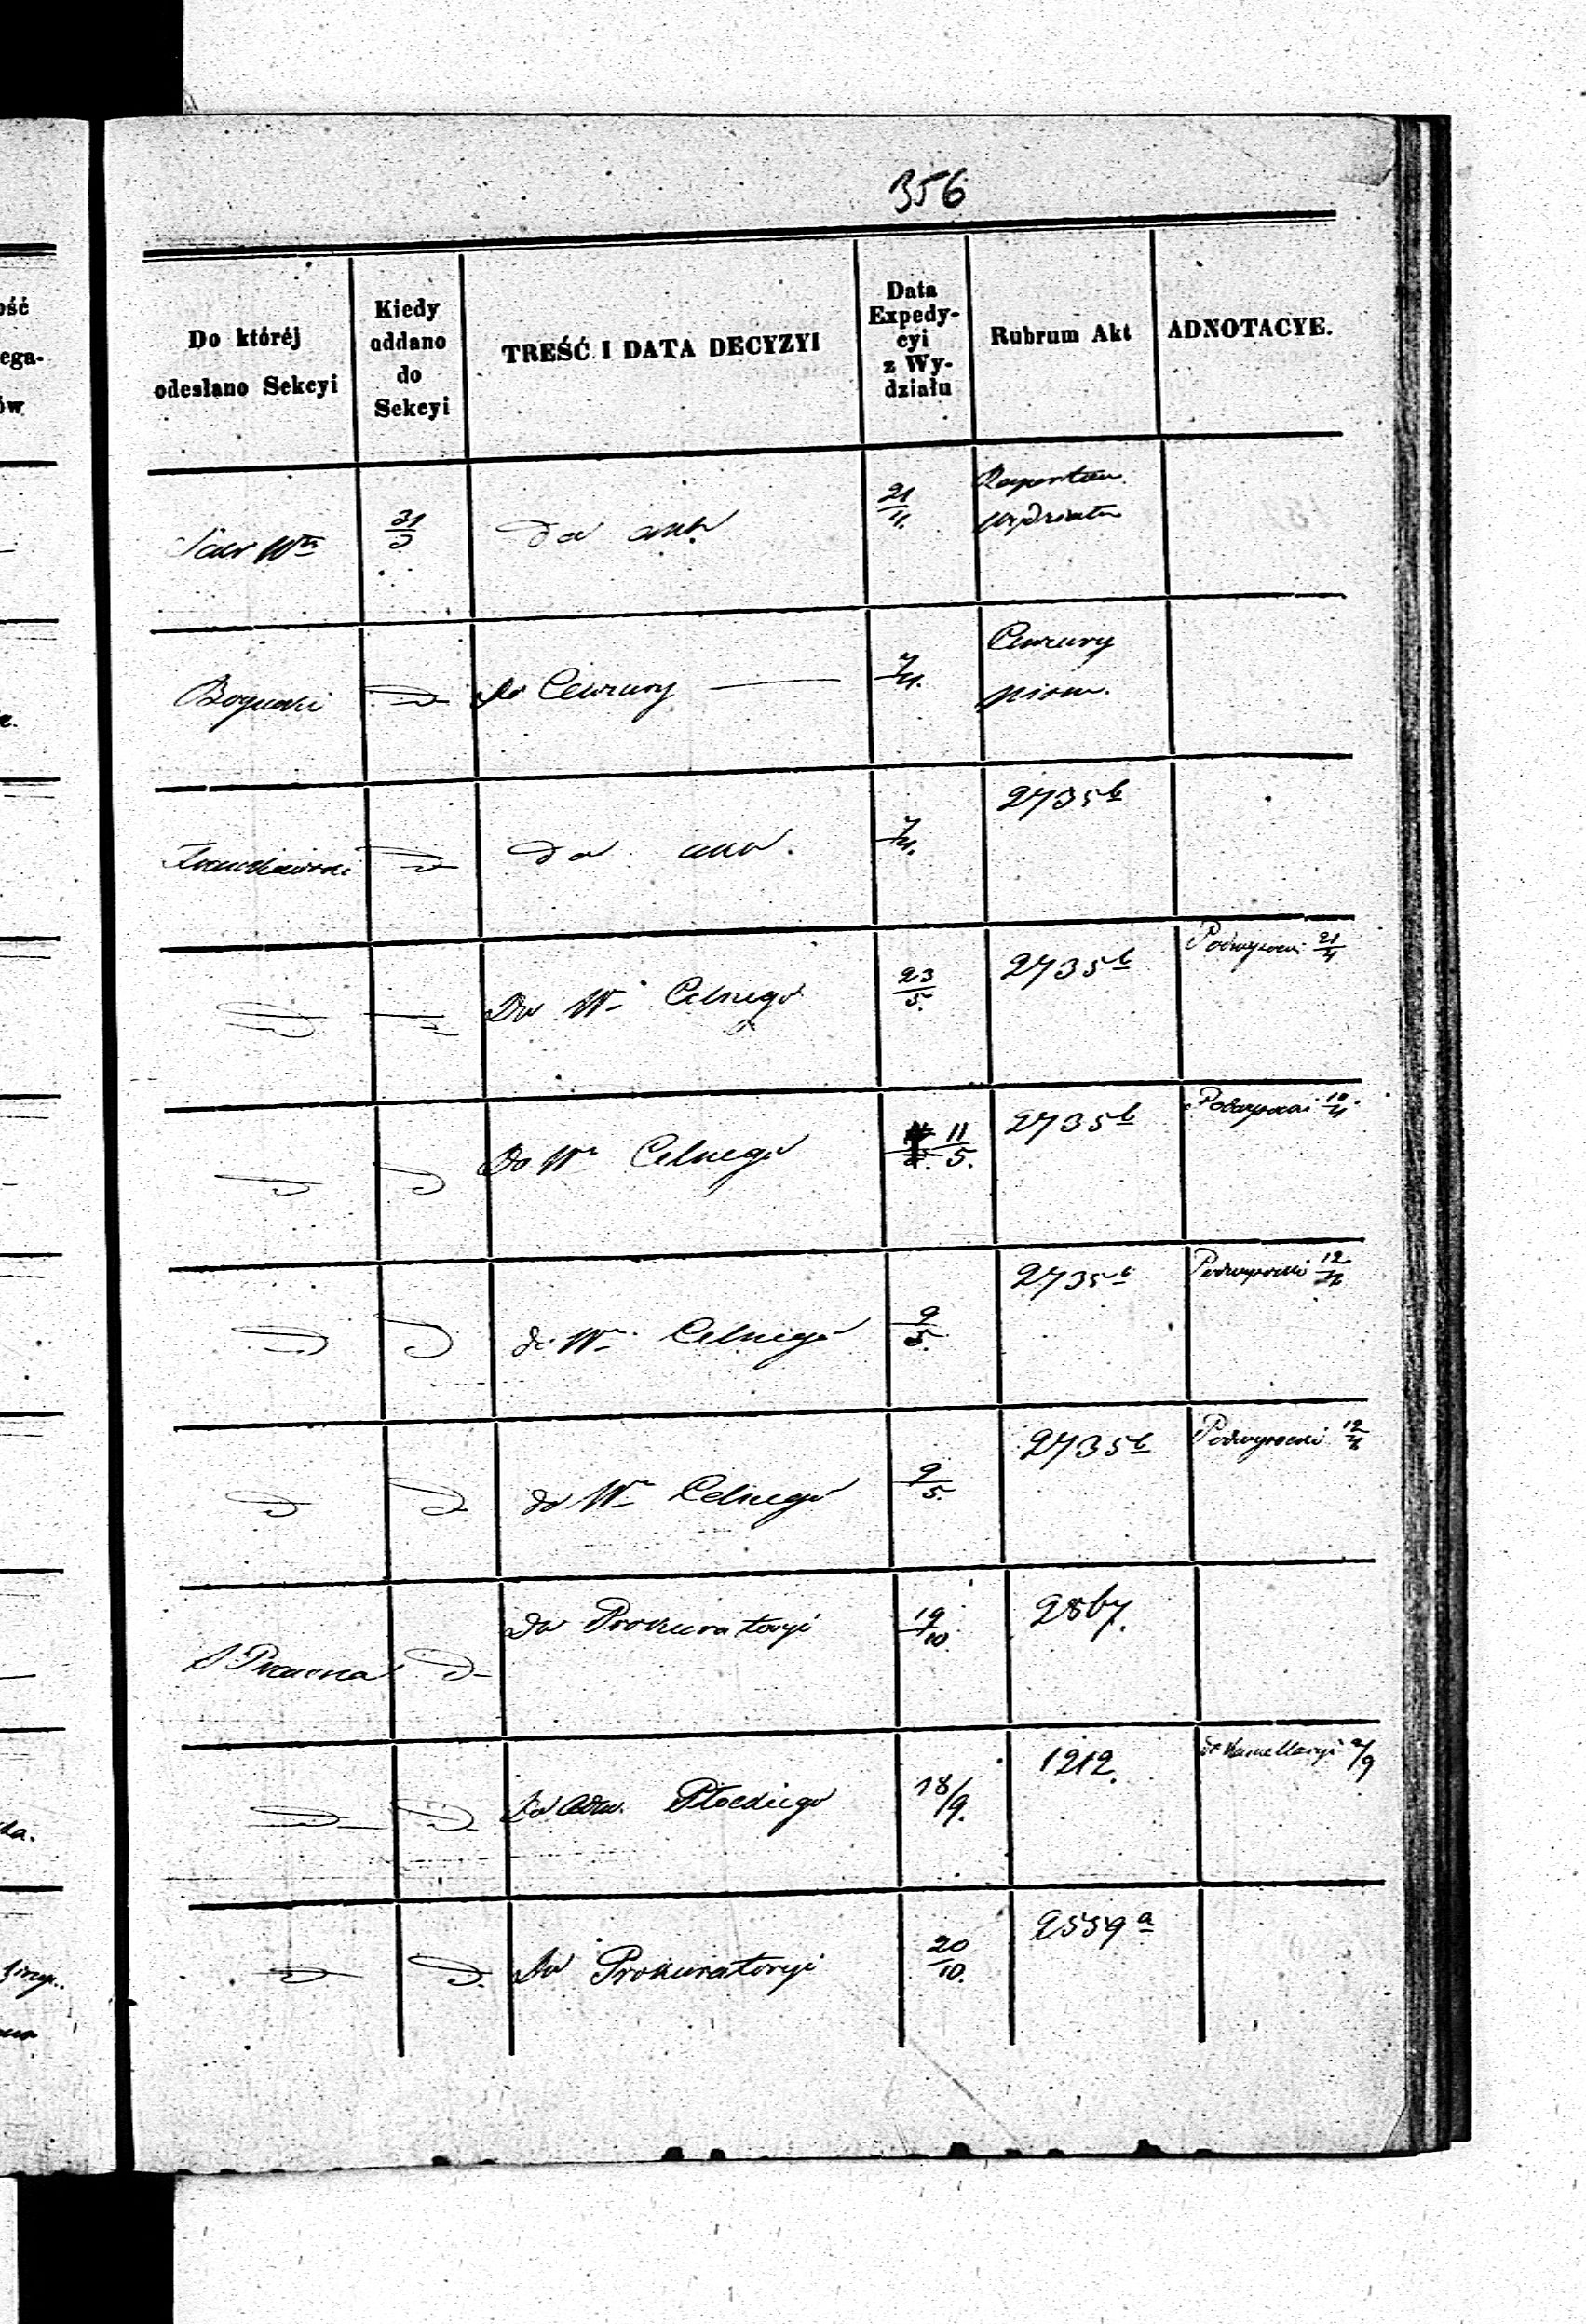 356
ość
ega-
ów
Do któréj
odesłano Sekcyi
Kiedy
oddano
do
Sekcyi
TREŚĆ I DATA DECYZYI
Data
Expedy-
cyi
z Wy-
działu
Rubrum Akt
ADNOTACYE.
31/3
do akt
21/11.
Wydziału
do Cenzury
7/4.
Cenzury
pism.
do akt.
7/4.
2735b
Do Wu Celnego
23/5.
2735b
Podwysocki 21/4
Do Wu Celnego
11/5.
2735b
Podwysocki 10/4.
do Wu Celnego
9/5.
2735b
Podwysocki 12/4
do Wu Celnego
9/5.
2735b
Podwysocki 12/4
S Prawna
do Prokuratoryi
19/10.
2867.
do Adm. Płockiego
18/9.
1212.
do Kancellaryi 2/9
do Prokuratoryi
20/10.
2559a